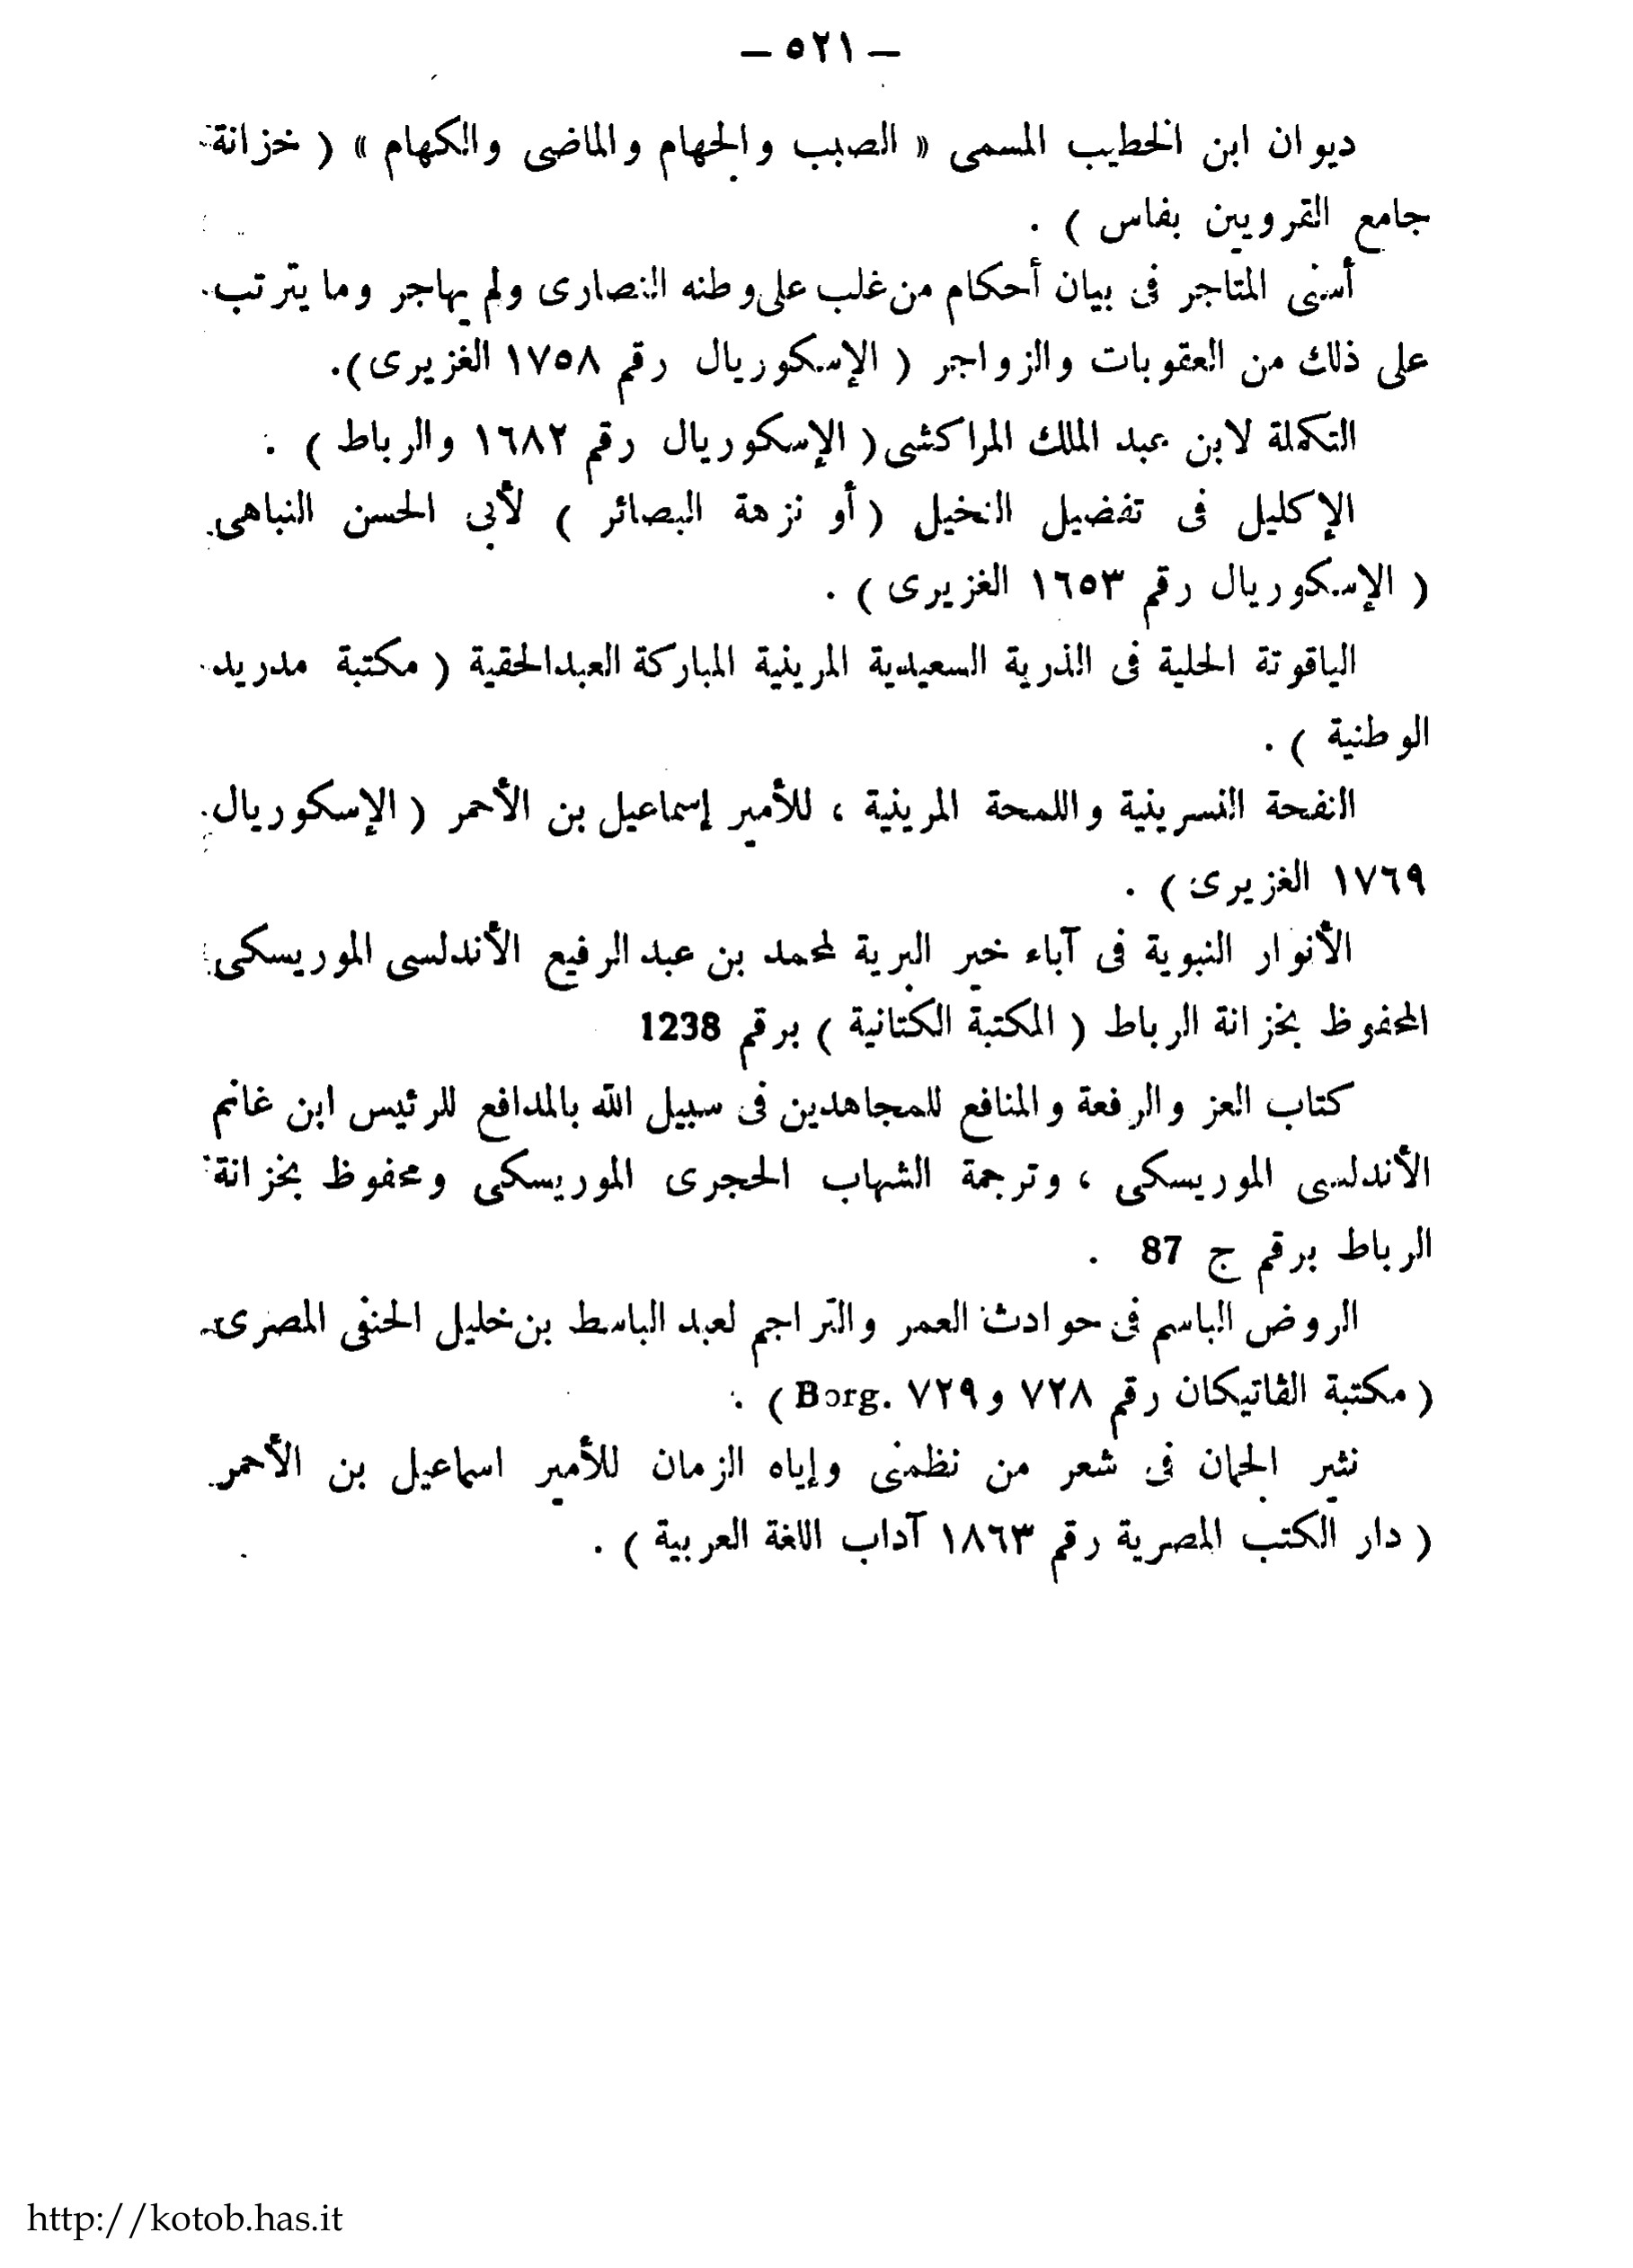 — ٥٢١ —
ديوان ابن الخطيب المسمى « الصيب والجهام والماضى والكهام » ( خزانة
جامع القرويين بفاس ) .
أسنى المتاجر فى بيان أحكام من غلب على وطنه النصارى ولم يهاجر وما يترتب
على ذلك من العقوبات والزواجر ( الإسكوريال رقم ١٧٥٨ الغزيرى ) .
التكملة لابن عبد الملك المراكشى ( الإسكوريال رقم ١٦٨٢ والرباط ) .
الإكليل فى تفضيل النخيل ( أو نزهة البصائر ) لأبى الحسن النباهى
( الإسكوريال رقم ١٦٥٣ الغزيرى ) .
الياقوتة الحلية فى الذرية السعيدية المرينية المباركة العبدالحقية ( مكتبة مدريد
الوطنية ) .
النفحة النسرينية واللمحة المرينية ، للأمير إسماعيل بن الأحمر ( الإسكوريال
١٧٦٩ الغزيرى ) .
الأنوار النبوية فى آباء خير البرية لمحمد بن عبد الرفيع الأندلسى الموريسكى
المحفوظ بخزانة الرباط ( المكتبة الكتانية ) برقم 1238
كتاب العز والرفعة والمنافع للمجاهدين فى سبيل الله بالمدافع للرئيس ابن غانم
الأندلسى الموريسكى ، وترجمة الشهاب الحجرى الموريسكى ومحفوظ بخزانة
الرباط برقم ج 87 .
الروض الباسم فى حوادث العمر والتراجم لعبد الباسط بن خليل الحنفى المصرى
( مكتبة الڤاتيكان رقم ٧٢٨ و ٧٢٩ Borg. ) .
نثير الجمان فى شعر من نظمنى وإياه الزمان للأمير اسماعيل بن الأحمر
( دار الكتب المصرية رقم ١٨٦٣ آداب اللغة العربية ) .
http://kotob.has.it